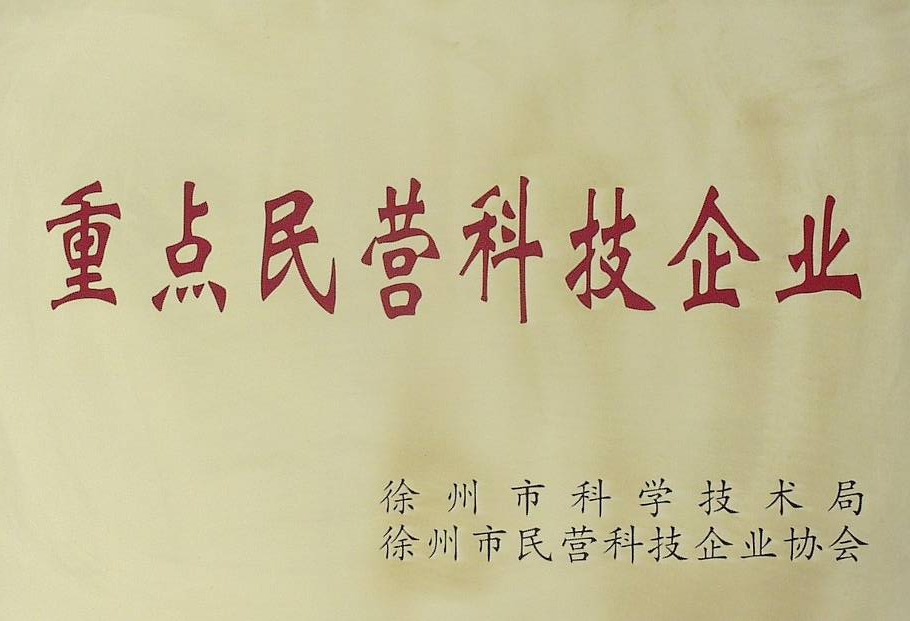 重点民营科技企业
徐州市科学技术局
徐州市民营科技企业协会